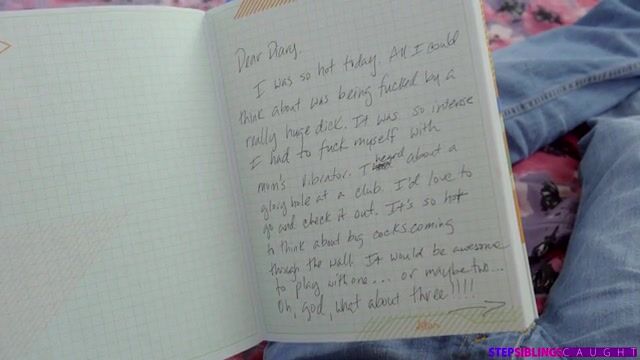 Dear Diary,
I was so hot today. All I could
think about was being fucked by a
really huge dick. It was so intense
I had to fuck myself with
mom's vibrator. I heard about a
glory hole at a club. I'd love to
go and check it out. It's so hot
to think about big cocks coming
through the wall. It would be awesome
to play with one... or maybe two...
Oh, god, what about three!!!!
STEPSIBLINGSCAUGHT